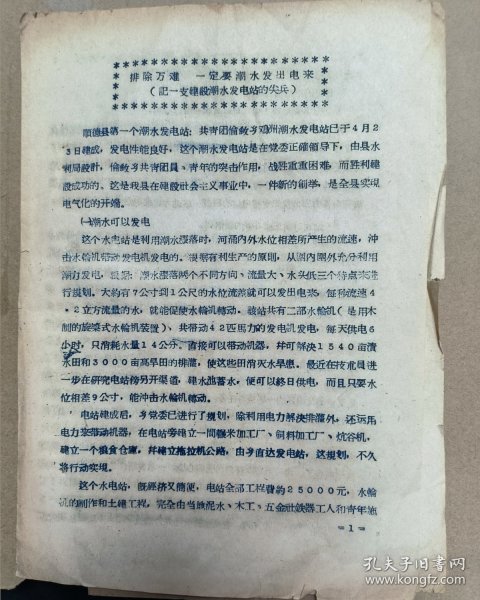 排除万难　一定要潮水发出电来
(記一支建設潮水发电站的尖兵)
順德县第一个潮水发电站:共青团倫敎乡鸡洲潮水发电站已于4月2
3日建成,发电性能良好,这个潮水发电站是在党委正確領导下,由县水
利局設計,倫敎乡共青团員、青年的突击作用,战胜重重困难,而胜利建
設成功的。这是我县在建設社会主义事业中,一件新的創举,是全县实現
电气化的开端。
(一)潮水可以发电
这个水电站是利用潮水漲落时,河涌內外水位相差所产生的流速,冲
击水輪机带动发电机发电的。根据有利生产的原則,从圍內圍外充分利用
潮力发电,根据:潮水漲落两个不同方向、流量大、水头低三个特点来进
行規划。大約有7公寸到1公尺的水位流差就可以发出电来,每秒流速4
·2立方流量的水,就能促使水輪机轉动。該站共有二部水輪机(是用木
制的旋槳式水輪机装置)、共带动42匹馬力的发电机发电,每天供电6
小时,只消耗水量14公分。直接可以带动机器,幷可解决1540亩漬
水田和3000亩高旱田的排灌,使这些田消灭水旱患。最近在技朮員进
一步在研究电站傍另开渠道,建水池蓄水,便可以終日供电,而且只要水
位相差9公寸,能冲击水輪机轉动。
电站建成后,乡党委已进行了規划,除利用电力解决排灌外,还运用
电力来带动机器,在电站旁建立一間碾米加工厂、飼料加工厂、炕谷机,
建立一个粮食仓庫,幷建立拖拉机公路,由乡直达发电站,这規划,不久
将行动实現。
这个水电站,旣經济又簡便,电站全部工程費約25000元,水輪
机的制作和土建工程,完全由当地泥水、木工、五金社鉄器工人和青年施
=1=
孔夫子旧书网
www.kongfz.com